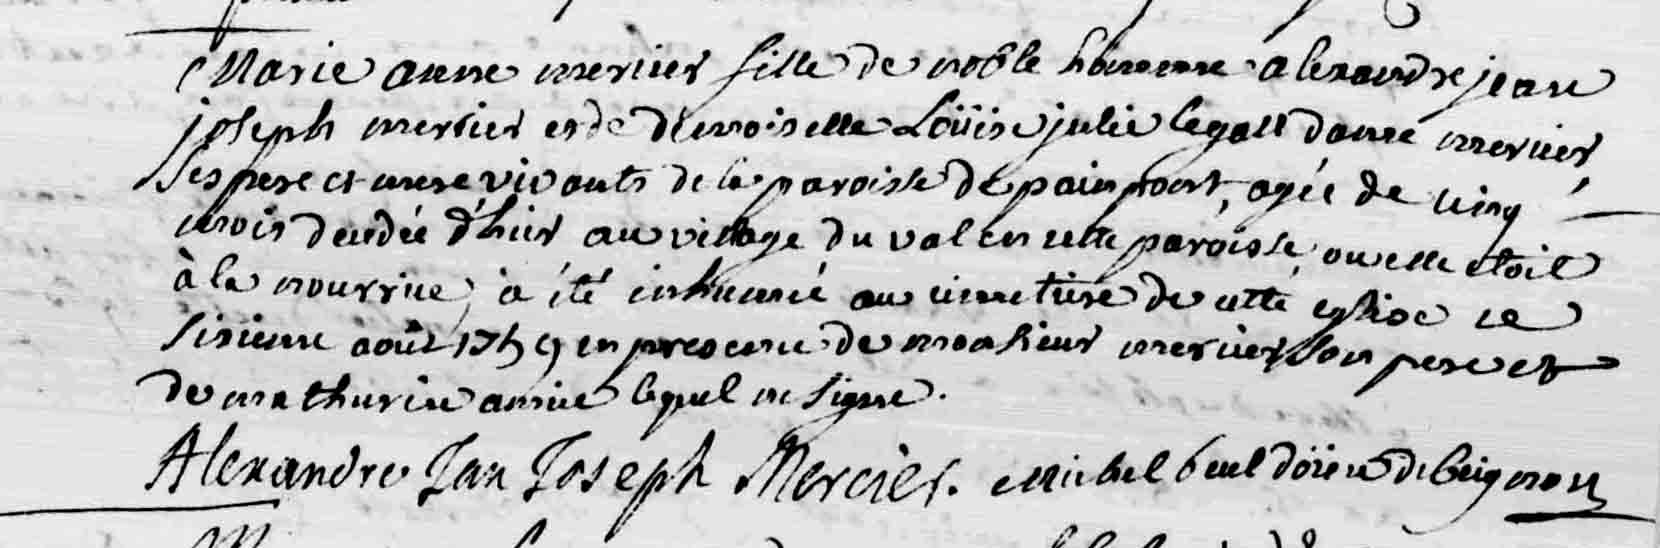 Marie anne mercier fille de noble homme alexandre jean
joseph mercier et de demoiselle Loüise julie legall dame mercier,
Ses pere et mere vivants de la paroisse de painpont, agée de cinq
mois decedée d'hier au village du val en cette paroisse, ou elle etoit
à la nourrice, à été inhumée au cimetiere de cette eglise ce
sixieme août 1759 en presence de monsieur mercier son pere et
de mathurin lequel ne signe.
Alexandre Jan Joseph Mercier. michel doien de beignon